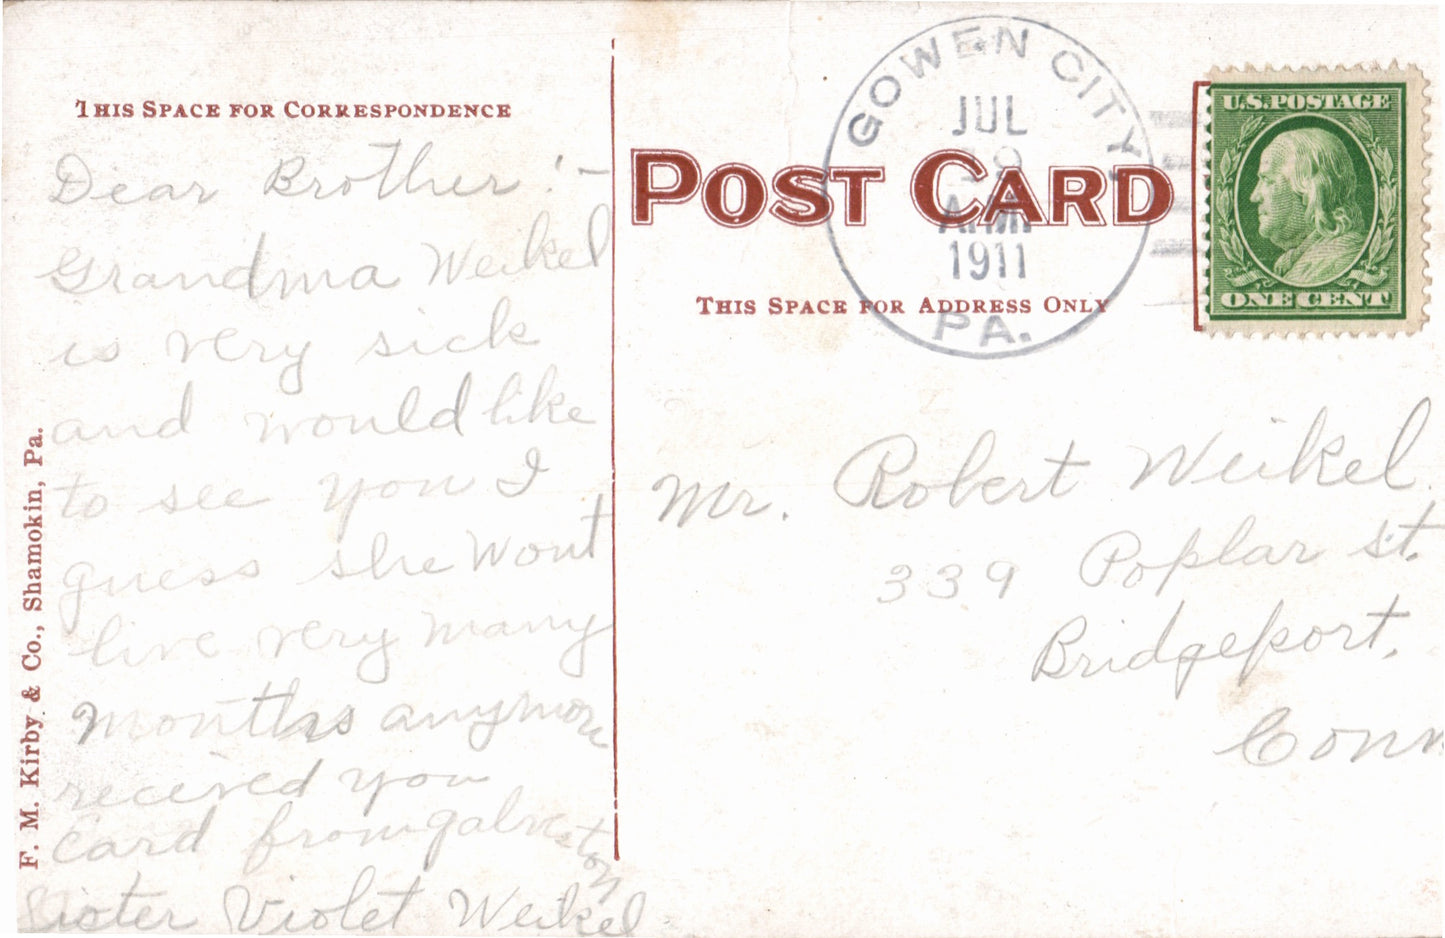 THIS SPACE FOR CORRESPONDENCE
Dear Brother :-
Grandma Weikel
is very sick
and would like
to see you I
guess she wont
live very many
months anymore
received you
card from galveston
Sister Violet Weikel
F. M. Kirby & Co., Shamokin, Pa.
GOWEN CITY
JUL
A.M.
1911
PA.
POST CARD
THIS SPACE FOR ADDRESS ONLY
U.S. POSTAGE
ONE CENT
Mr. Robert Weikel
339 Poplar St.
Bridgeport,
Conn